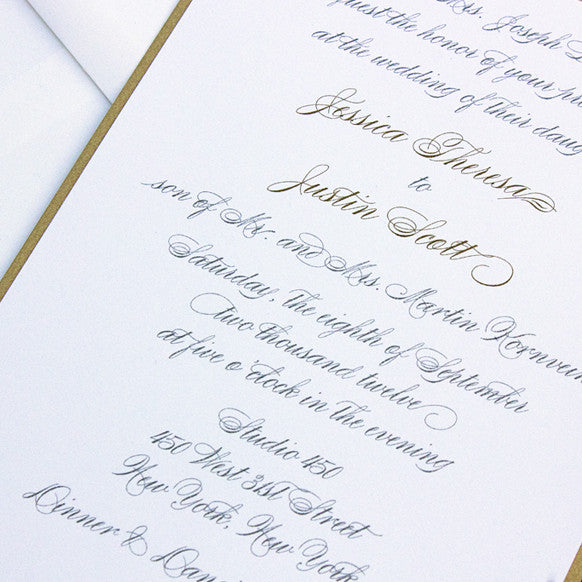 Mrs. Joseph
request the honor of your
at the wedding of their
Jessica Theresa
to
Justin Scott
son of Mr. and Mrs. Martin
Saturday, the eighth of September
two thousand twelve
at five o'clock in the evening
Studio 450
450 West 31st Street
New York, New York
Dinner &